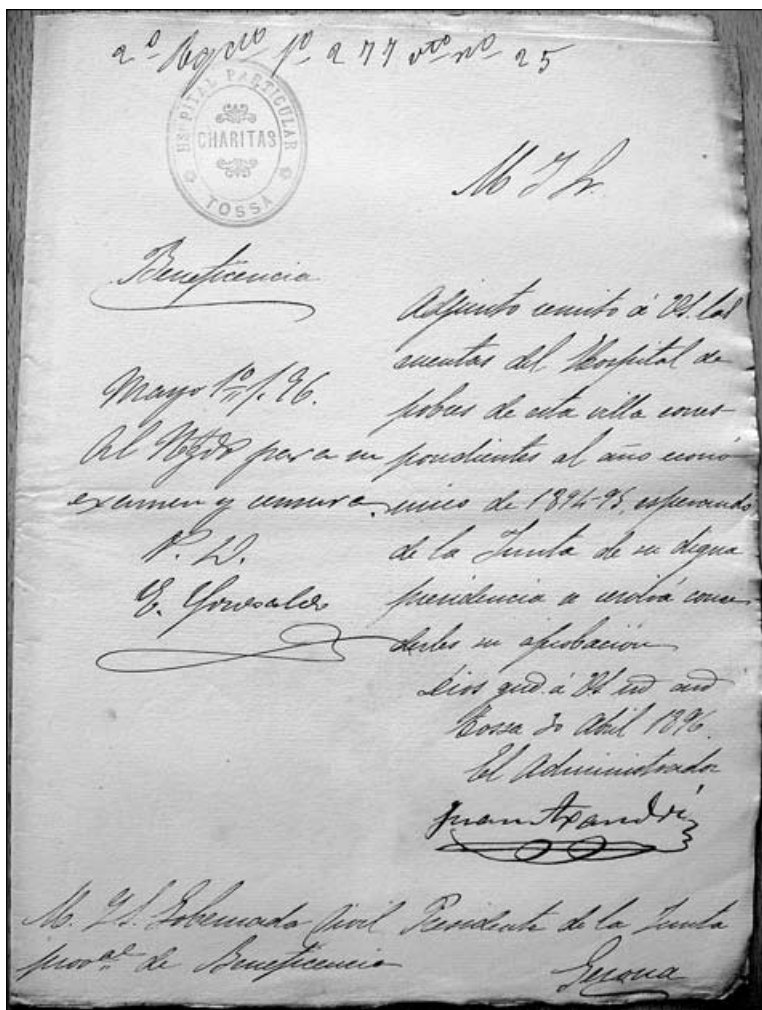 2º Regtro fº 277 vto nº 25
HOSPITAL PARTICULAR
CHARITAS
TOSSA
M I Sr.
Beneficencia
Mayo 1º/96.
Al Negdo para su
examen y censura.
P. D.
E. Gonzalez
Adjunto remito á VS. las
cuentas del Hospital de
pobres de esta villa corres-
pondientes al año econó
mico de 1894-95, esperando
de la Junta de su digna
presidencia se servirá conce-
derles su aprobación
Dios gude á VS. ms as
Tossa 30 Abril 1896.
El Administrador
Juan
M. I. S. Gobernador Civil Presidente de la Junta
proval de Beneficencia
Gerona